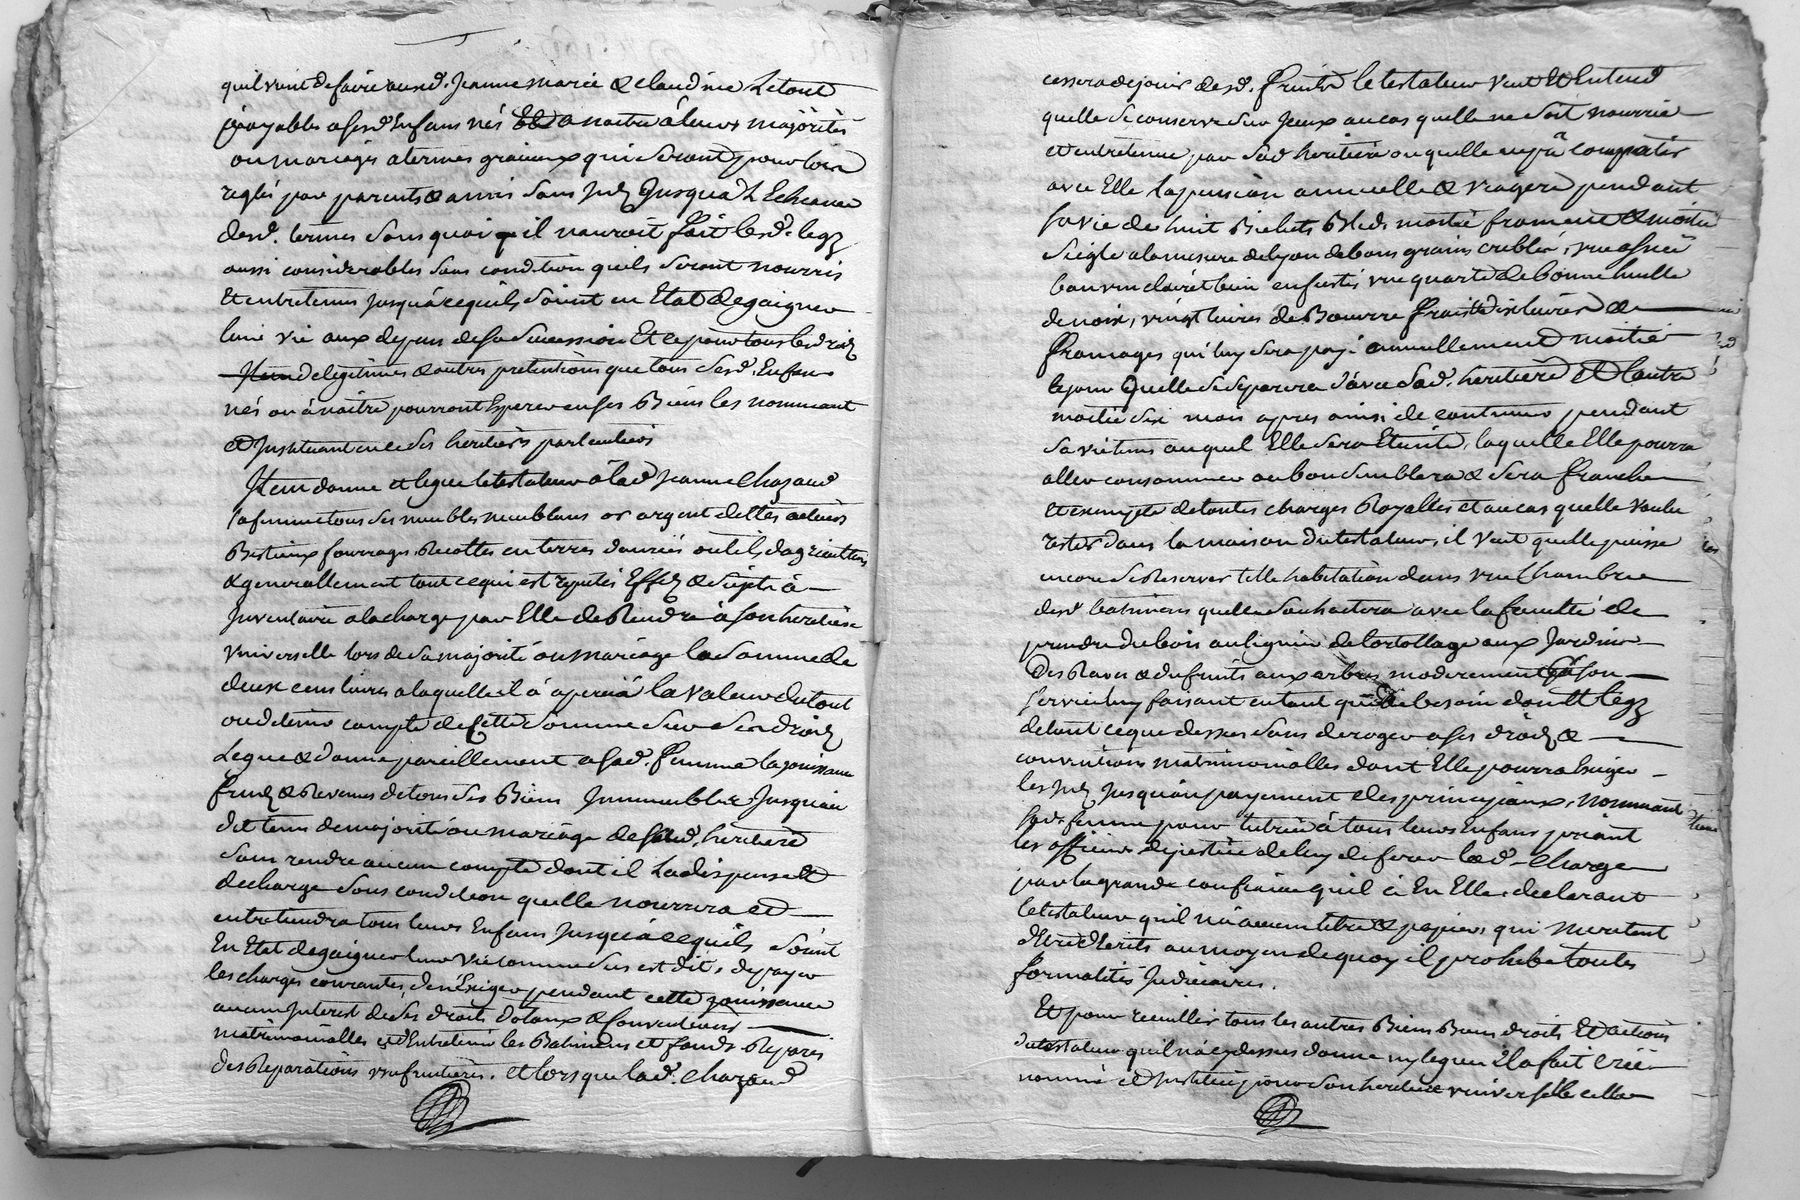 quil vient de faire auxd. Jeanne marie & claudine Le tout
payables a sesd Enfans nés & a naitre á leurs majorités
ou mariages a termes graieux qui seront pour lors
reglés par parents & amis sans Jntz Jusqua L Echeance
desd. termes sans quoi il nauroit fait lesd. legz
aussi considerables sous condition quils seront nourris
et entretenus jusquá cequils soint en Etat de gaigner
leur vie aux depens de sa succession Et ce pour tous les droitz
de legitimes & autres pretentions que tous sesd. Enfans
nés ou á naitre pourront Esperer en ses Biens les nommant
et Jnstituant en ce ses heritiers particuliers
Jtem donne et legue le testateur á lad Jeanne Chazaud
sa femme tous ses meubles meublans or argent dettes actives
Bestiaux fourrages Recoltes en terres danrées outils dagriculture
& generallement tout ce qui est reputés Effetz & sujets á
Jnventaire a la charge par Elle de Rendre á son heritiere
Vniverselle lors de sa majorité ou mariage la somme de
deux cens livres a laquelle il á apprecié la valeur du tout
ou de tenir compte de cette somme sur ses droitz
Legue & donne pareillement a sad. femme la jouissance
fruitz & Revenus de tous ses Biens Jmmeubles Jusquau
dit tems de majorité ou mariage de sad. heritiere
sans rendre aucun compte dont il La dispense et
decharge sous condition quelle nourrira et
entretiendra tous leurs Enfans Jusquá cequils soint
En Etat de gaigner leur vie comme sus est dit, de payer
les charges courantes, den Exiger pendant cette jouissance
aucun Jnterest de ses droits dotaux & Conventions
matrimonialles et d'Entretenir les Batimens et fonds Reparés
des Reparations usufruitieres. et lors que lad. Chazaud
cessera de jouir desd. fruits le testateur veut Et Entend
quelle se conserve sur Jceux au cas quelle ne soit nourrie
et entretenue par sad heritiere ou quelle ne put compatir
avec Elle la pension annuelle & viagere pendant
sa vie de huit Bichets Bled moitié froment & moitié
seigle a la mesure de lyon de bons grains criblés, une asnée
bon vin clairet bien enfusté, une quarte de bonne huille
de noix, vingt livres de Beurre frais & dix livres de
fromages qui luy sera payé annuellement moitié
le jour quelle se separera d'avec sad. heritiere et Lautre
moitié six mois apres ainsi de continuer pendant
sa vie tems auquel Elle sera Eteinte, laquelle Elle pourra
aller consommer ou bon semblera & sera franche
et exempte de toutes charges Royalles et au cas quelle voulu
rester dans la maison du testateur, il veut quelle puisse
encore se Reserver telle habitation dans une Chambre
desd batimens quelle souhaitera avec la faculté de
prendre du bois au lignier de lortollage aux Jardins
Des Raves & du fruits aux arbres moderement & á son
service luy faisant en tant que de besoin dont legz
de tout ce que dessus sans deroger a ses droitz &
conventions matrimonialles dont Elle pourra Exiger
les Jntz Jusquau payement des principaux, nommant
sad. femme pour tutrice á tous leurs Enfans priant
les officiers de justice de luy deferer lad. Charge
par la grande confiance quil á En Elle, declarant
le testateur quil ná aucun titre & papiers qui meritent
d'Etre d'Ecrits au moyen de quoy il prohibe toutes
formalités Judiciaires.
Et pour recuillir tous les autres Biens Biens droits Et actions
du testateur quil ná cydessus donné ny legué Jl a fait créé
nommé et Jnstitué pour son heritiere universelle celle